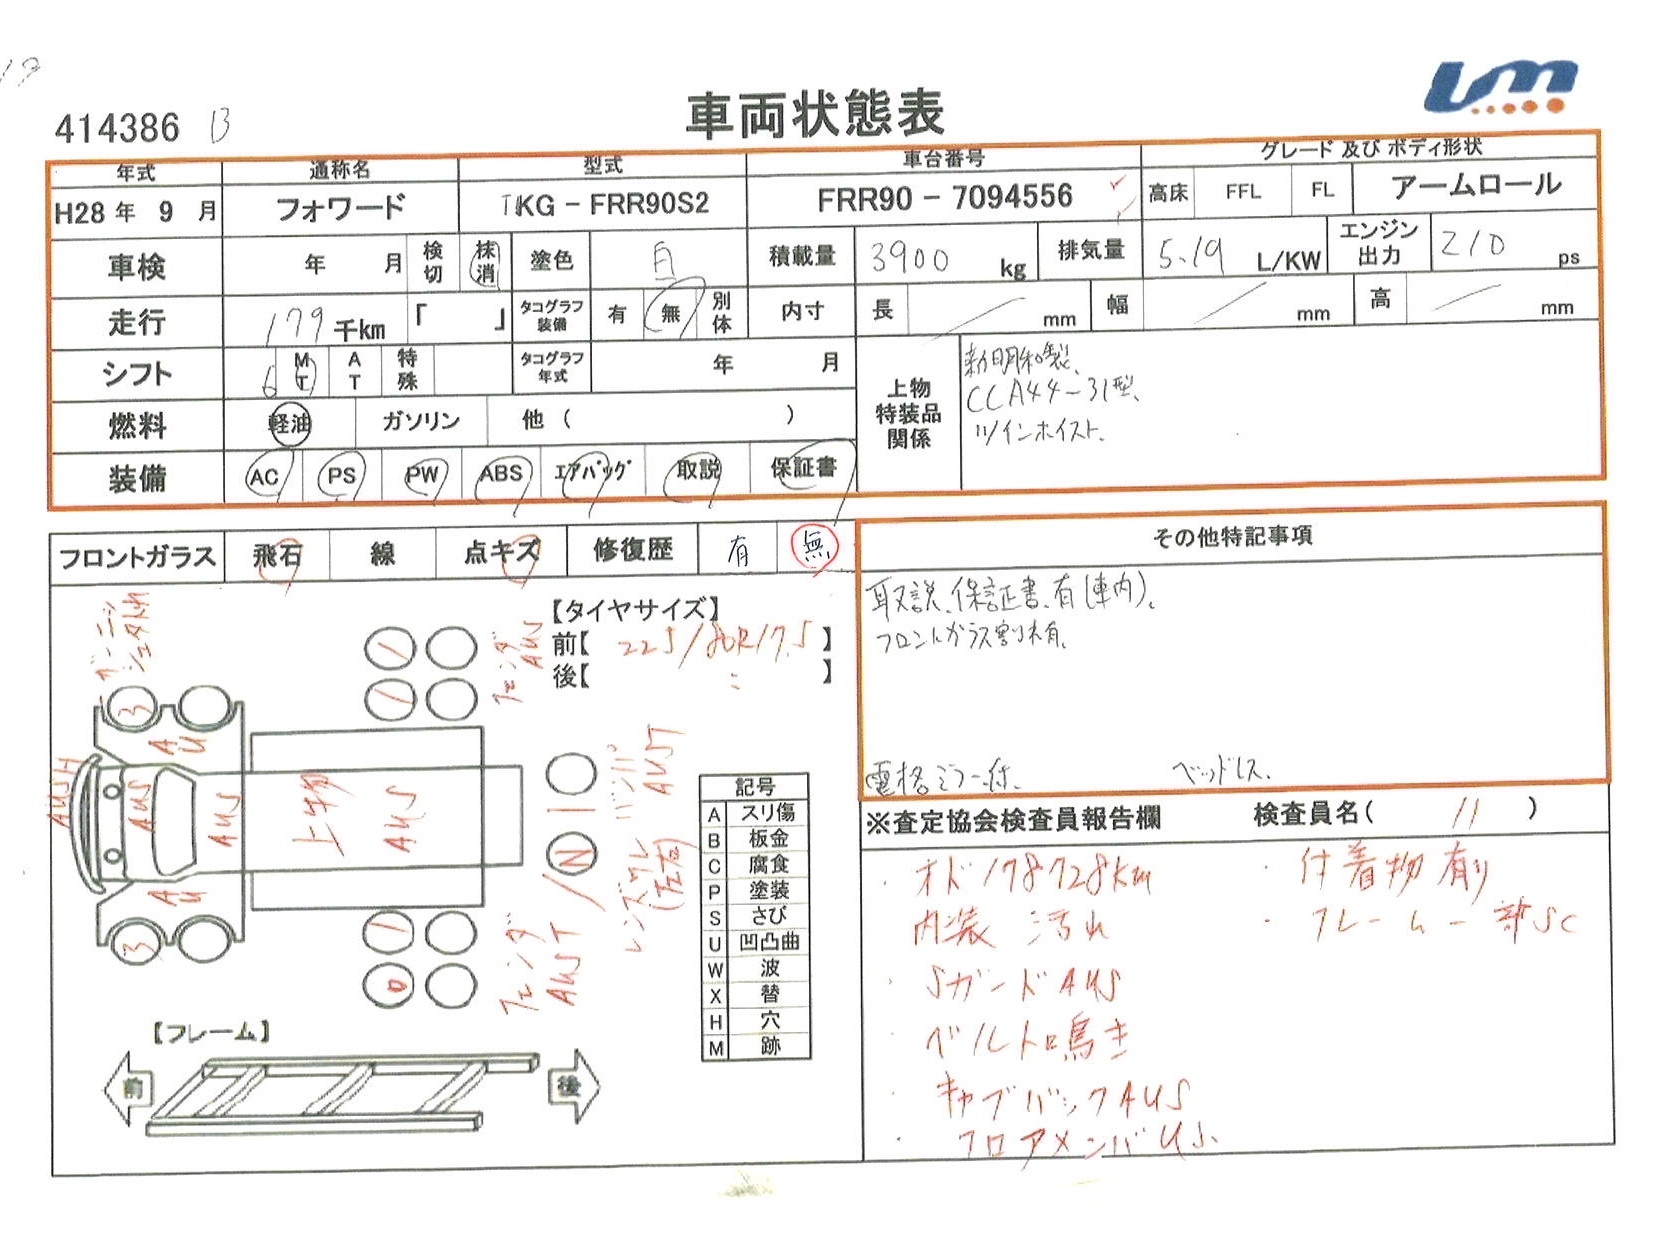 414386 B
車両状態表
年式 通称名 型式 車台番号 グレード 及び ボディ形状
H28 年 9 月 フォワード TKG - FRR90S2 FRR90 - 7094556 高床 FFL FL アームロール
車検 年 月 検切 抹消 塗色 白 積載量 3900 kg 排気量 5.19 L/KW エンジン出力 210 ps
走行 179 千km 「 」 タコグラフ装備 有 無 別体 内寸 長 mm 幅 mm 高 mm
シフト 6 MT AT 特殊 タコグラフ年式 年 月
上物特装品関係
新明和製、
CCA44-31型、
ツインホイスト、
燃料 軽油 ガソリン 他 ( )
装備 AC PS PW ABS エアバッグ 取説 保証書
フロントガラス 飛石 線 点キズ 修復歴 有 無
その他特記事項
取説、保証書、有(車内)、
フロントガラス割れ有、
電格ミラー付、 ベッドレス、
【タイヤサイズ】
前【 225/80R17.5 】
後【 〃 】
フェンダ AUS
3
AU
AUSH
AUS
AUS
上物
AUS
AU
3
1
1
1
0
N
バンパ AUST
レンズワレ(左右)
フェンダ AUST
記号
A スリ傷
B 板金
C 腐食
P 塗装
S さび
U 凹凸曲
W 波
X 替
H 穴
M 跡
【フレーム】
前 後
※査定協会検査員報告欄 検査員名( 11 )
・オド178728km
内装 汚れ
・SガードAUS
・ベルト鳴き
・キャブバックAUS
・フロアメンバUS、
・付着物有り
・フレーム一部SC